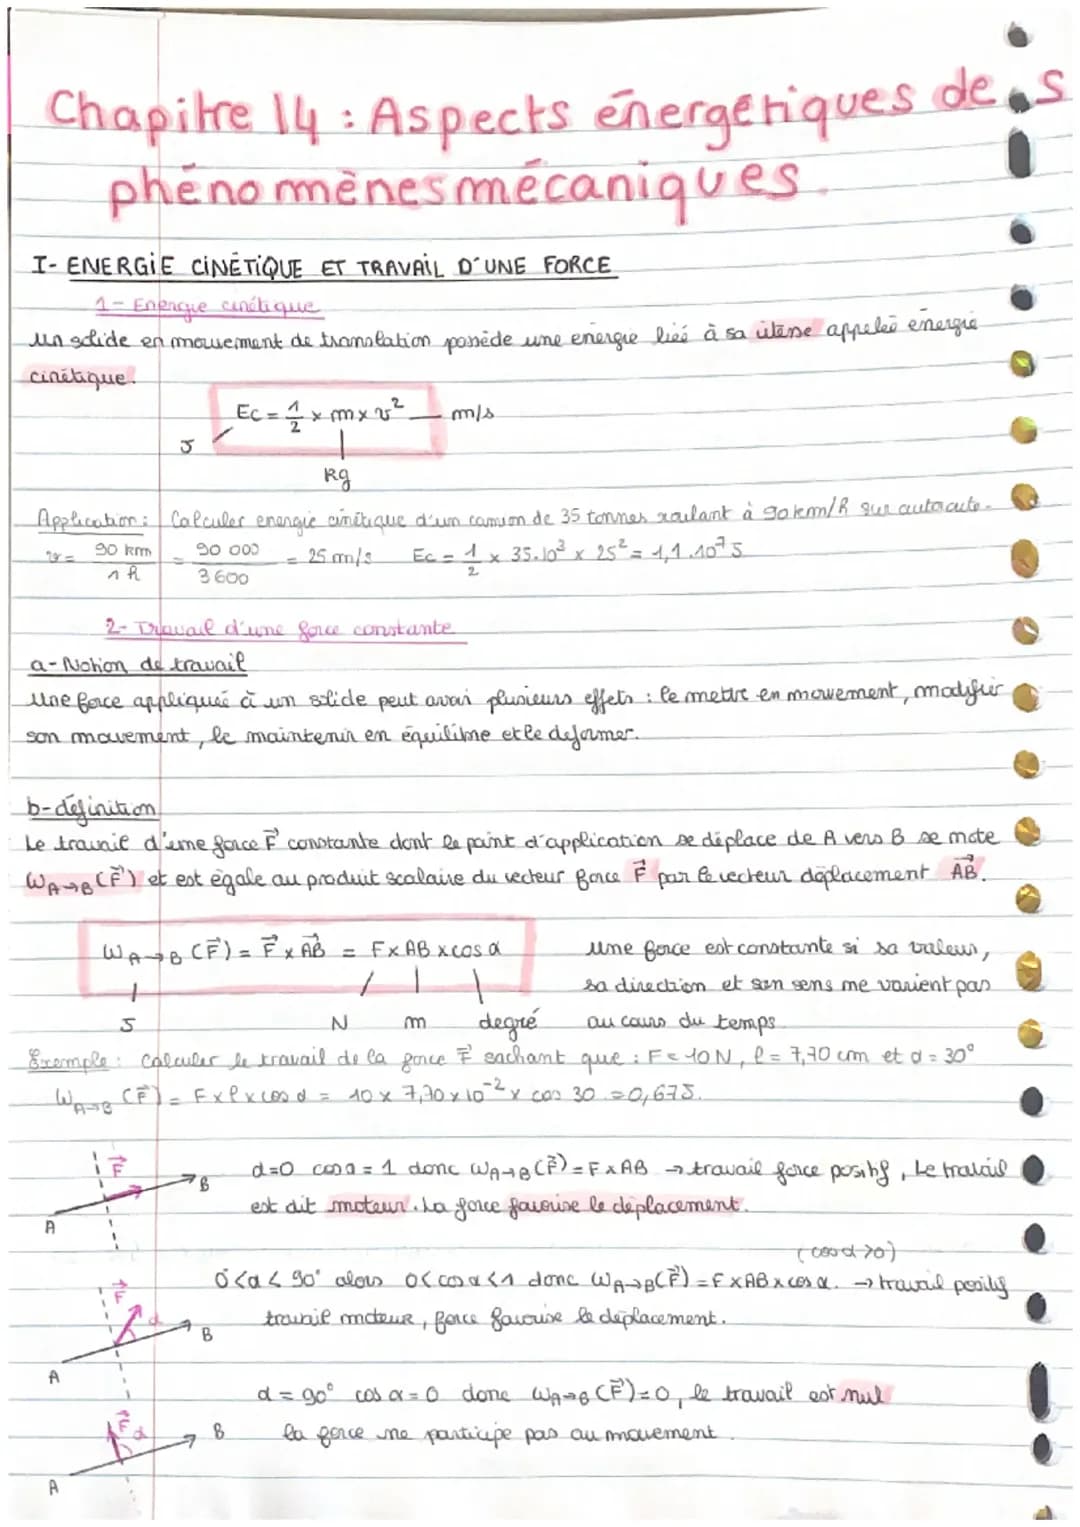 Chapitre 14 : Aspects énergétiques des
phénomènes mécaniques.
I- ENERGIE CINÉTIQUE ET TRAVAIL D'UNE FORCE
1- Energie cinétique
Un solide en mouvement de translation possède une énergie liée à sa vitesse appelée énergie
cinétique.
Ec = 1/2 × m × v² — m/s
J
Kg
Application : Calculer energie cinétique d'un camion de 35 tonnes roulant à 90km/h sur autoroute.
v = 90 km / 1 h = 90 000 / 3600 = 25 m/s Ec = 1/2 × 35.10³ × 25² = 1,1.10⁷ J
2- Travail d'une force constante
a- Notion de travail
Une force appliquée à un solide peut avoir plusieurs effets : le mettre en mouvement, modifier
son mouvement, le maintenir en équilibre et le deformer.
b- définition
Le travail d'une force F⃗ constante dont le point d'application se déplace de A vers B se note
W A→B (F⃗) et est égale au produit scalaire du vecteur force F⃗ par le vecteur déplacement AB⃗.
W A→B (F⃗) = F⃗ × AB⃗ = F × AB × cos α
Une force est constante si sa valeur,
sa direction et son sens ne varient pas
J N m degré au cours du temps
Exemple : Calculer le travail de la force F⃗ sachant que : F = 10 N, l = 7,70 cm et α = 30°
W A→B (F⃗) = F × l × cos α = 10 × 7,70 × 10⁻² × cos 30 = 0,67 J.
F⃗ B A
α=0 cos α = 1 donc W A→B (F⃗) = F × AB → travail force positif, Le travail
est dit moteur. La force favorise le déplacement.
(cos α >0)
0<α< 90° alors 0< cos α <1 donc W A→B (F⃗) = F × AB × cos α. → travail positif
travail moteur, force favorise le déplacement.
F⃗ α B A
α = 90° cos α = 0 donc W A→B (F⃗) = 0, le travail est nul
la force ne participe pas au mouvement.
F⃗ α B A